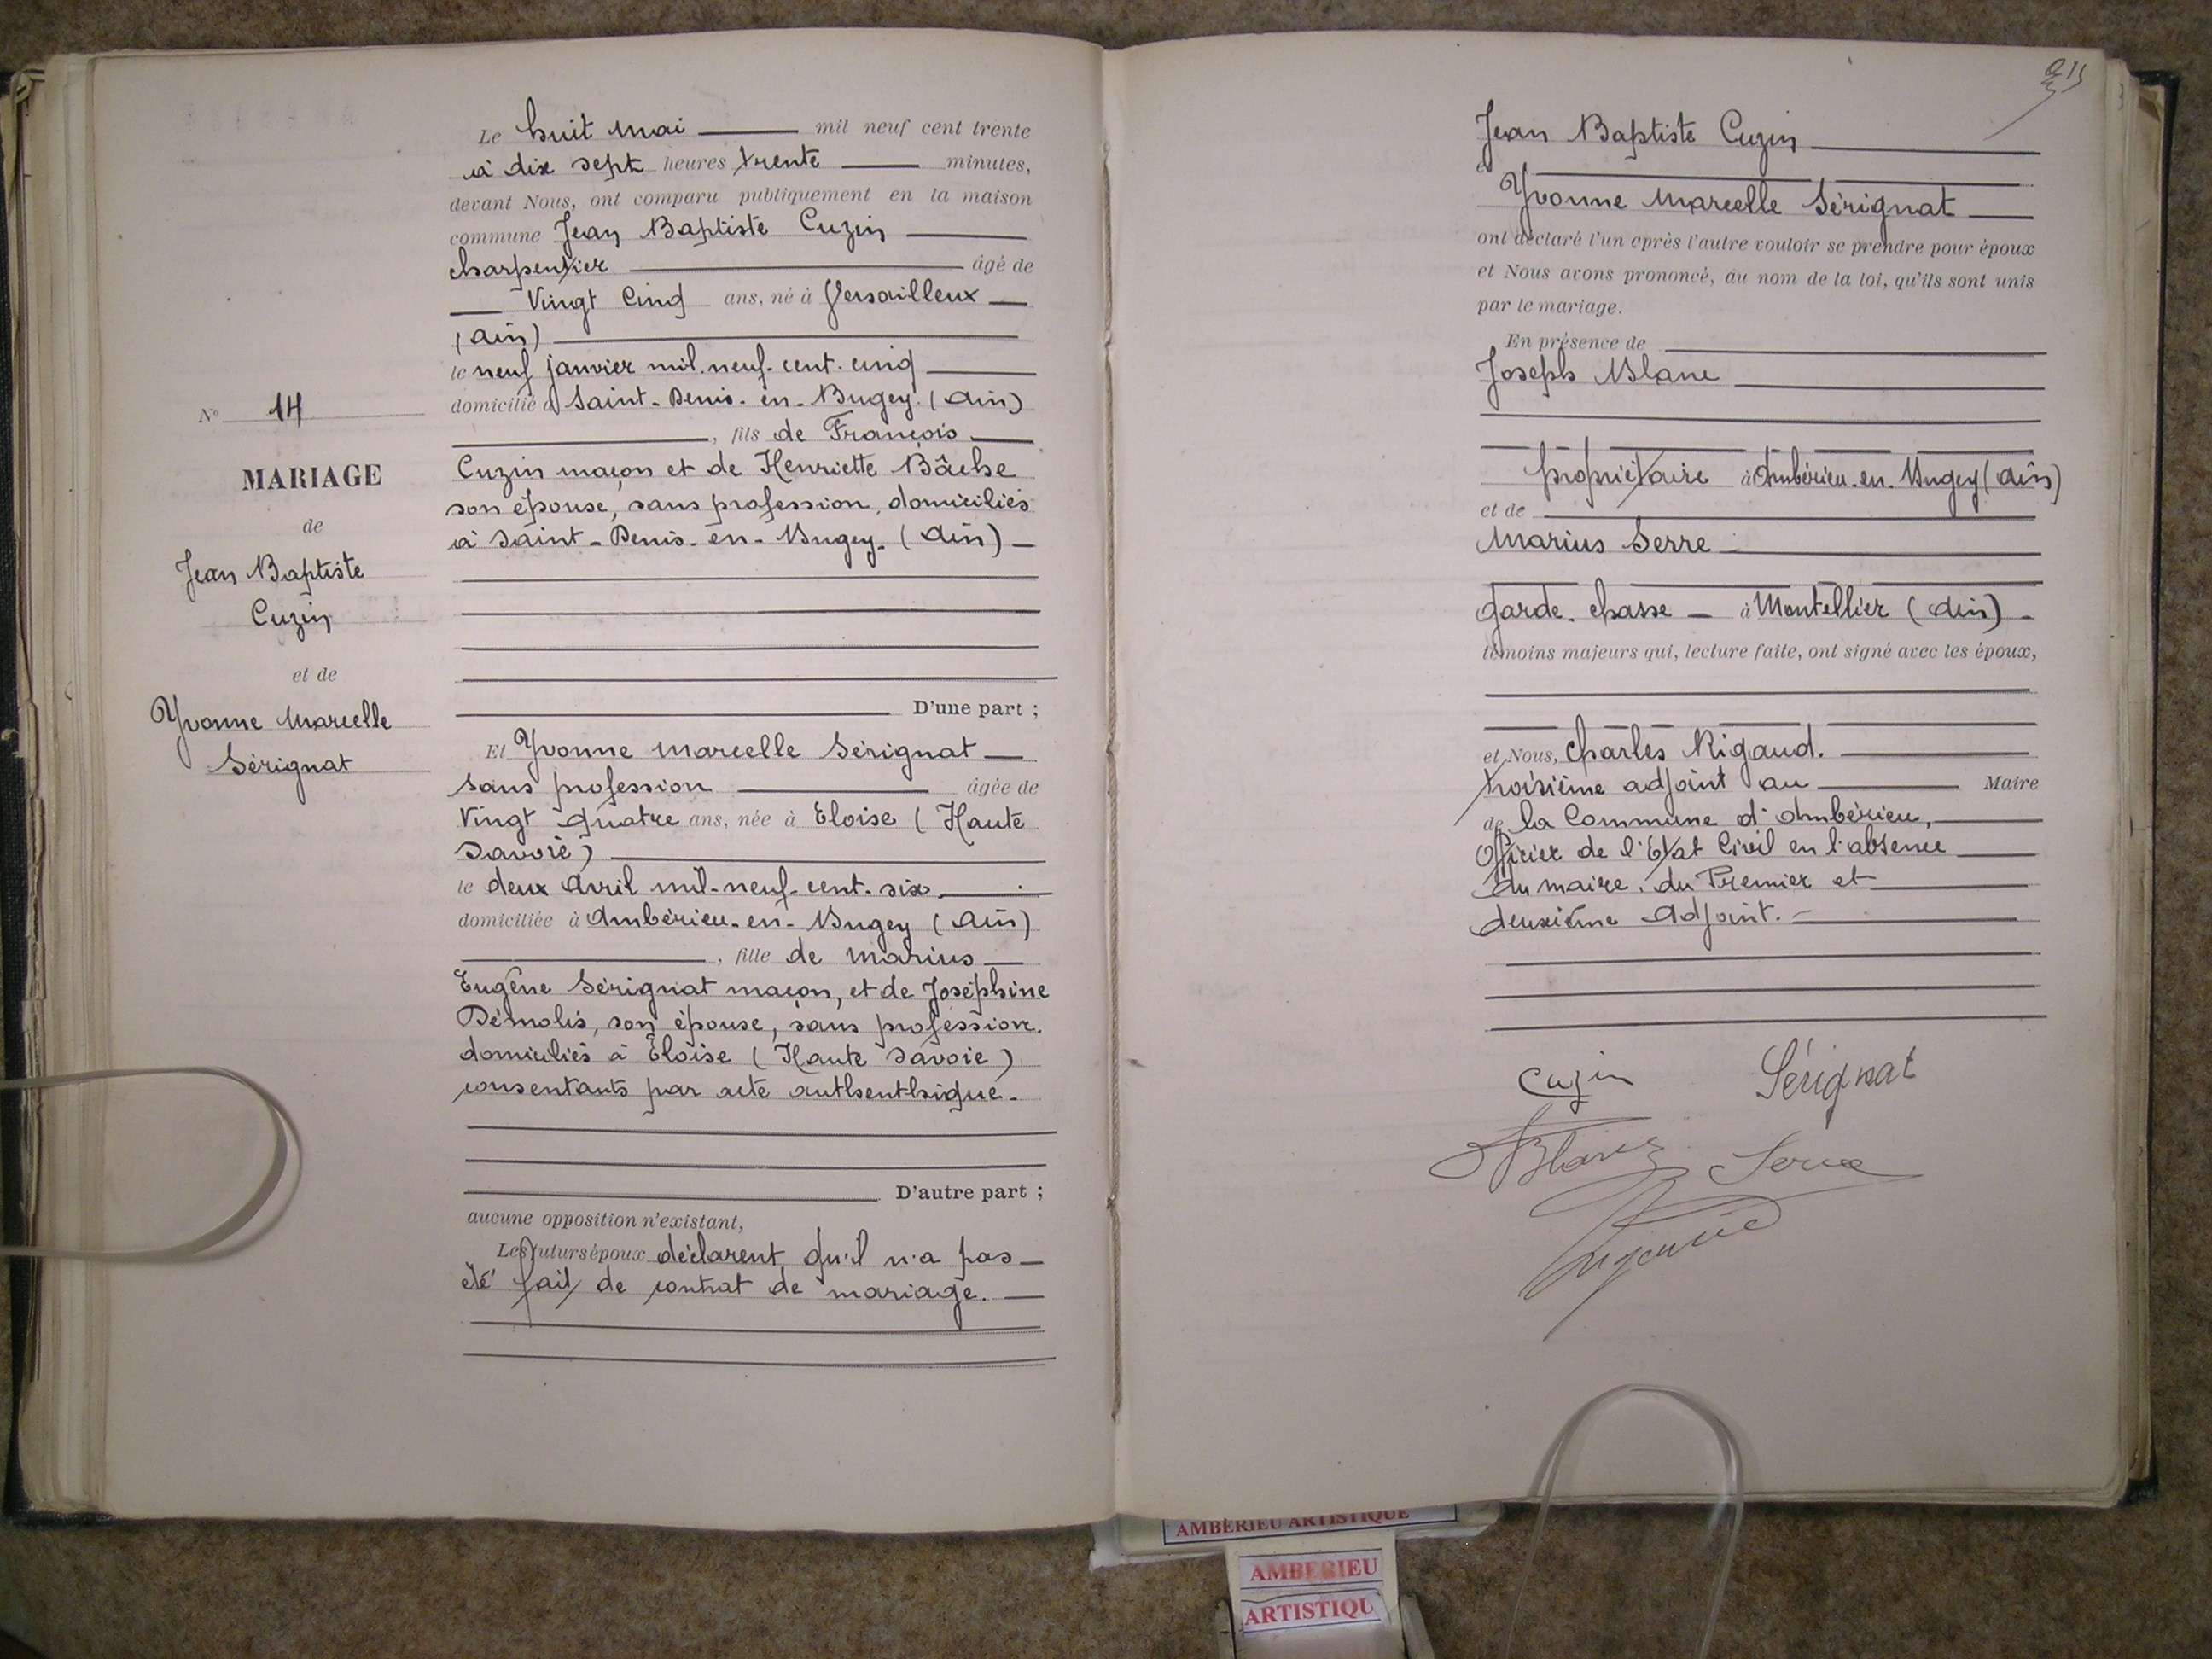 Le huit mai mil neuf cent trente
à dix sept heures trente minutes,
devant Nous, ont comparu publiquement en la maison
commune Jean Baptiste Cuzin
charpentier âgé de
Vingt Cinq ans, né à Versailleux
(Ain)
le neuf janvier mil-neuf-cent-cinq
domicilié à Saint-Denis-en-Bugey (Ain)
, fils de François
Cuzin maçon et de Henriette Bâche
son épouse, sans profession, domiciliés
à Saint-Denis-en-Bugey-(Ain)
D'une part ;
Et Yvonne Marcelle Sérignat
sans profession âgée de
Vingt quatre ans, née à Eloise (Haute
Savoie)
le deux Avril mil-neuf-cent-six
domiciliée à Ambérieu-en-Bugey (Ain)
, fille de Marius
Eugène Sérignat maçon, et de Joséphine
Démolis, son épouse, sans profession.
domiciliés à Éloise (Haute Savoie)
consentants par acte authenthique.
D'autre part ;
aucune opposition n'existant,
Les futurs époux déclarent qu'il n'a pas
été fait de contrat de mariage.
N° 14
MARIAGE
de
Jean Baptiste
Cuzin
et de
Yvonne Marcelle
Sérignat
Jean Baptiste Cuzin
et
Yvonne Marcelle Sérignat
ont déclaré l'un après l'autre vouloir se prendre pour époux
et Nous avons prononcé, au nom de la loi, qu'ils sont unis
par le mariage.
En présence de
Joseph Blanc
propriétaire à Ambérieu-en-Bugey (Ain)
et de
Marius Serre
garde-chasse à Montellier (Ain)
témoins majeurs qui, lecture faite, ont signé avec les époux,
et Nous, Charles Rigaud.
troisième adjoint au Maire
de la Commune d'Ambérieu,
Officier de l'Etat Civil en l'absence
du maire, du Premier et
deuxième Adjoint.
Cuzin Sérignat
Blanc Serre
AMBÉRIEU ARTISTIQUE
AMBERIEU
ARTISTIQU